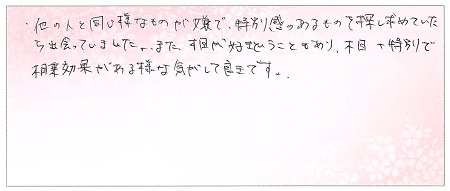 ・他の人と同じ様なものが嫌で、特別感のあるものを探し求めていた
ら出会っていました。また、木目が好きということもあり、木目+特別で
相乗効果がある様な気がして良きです。